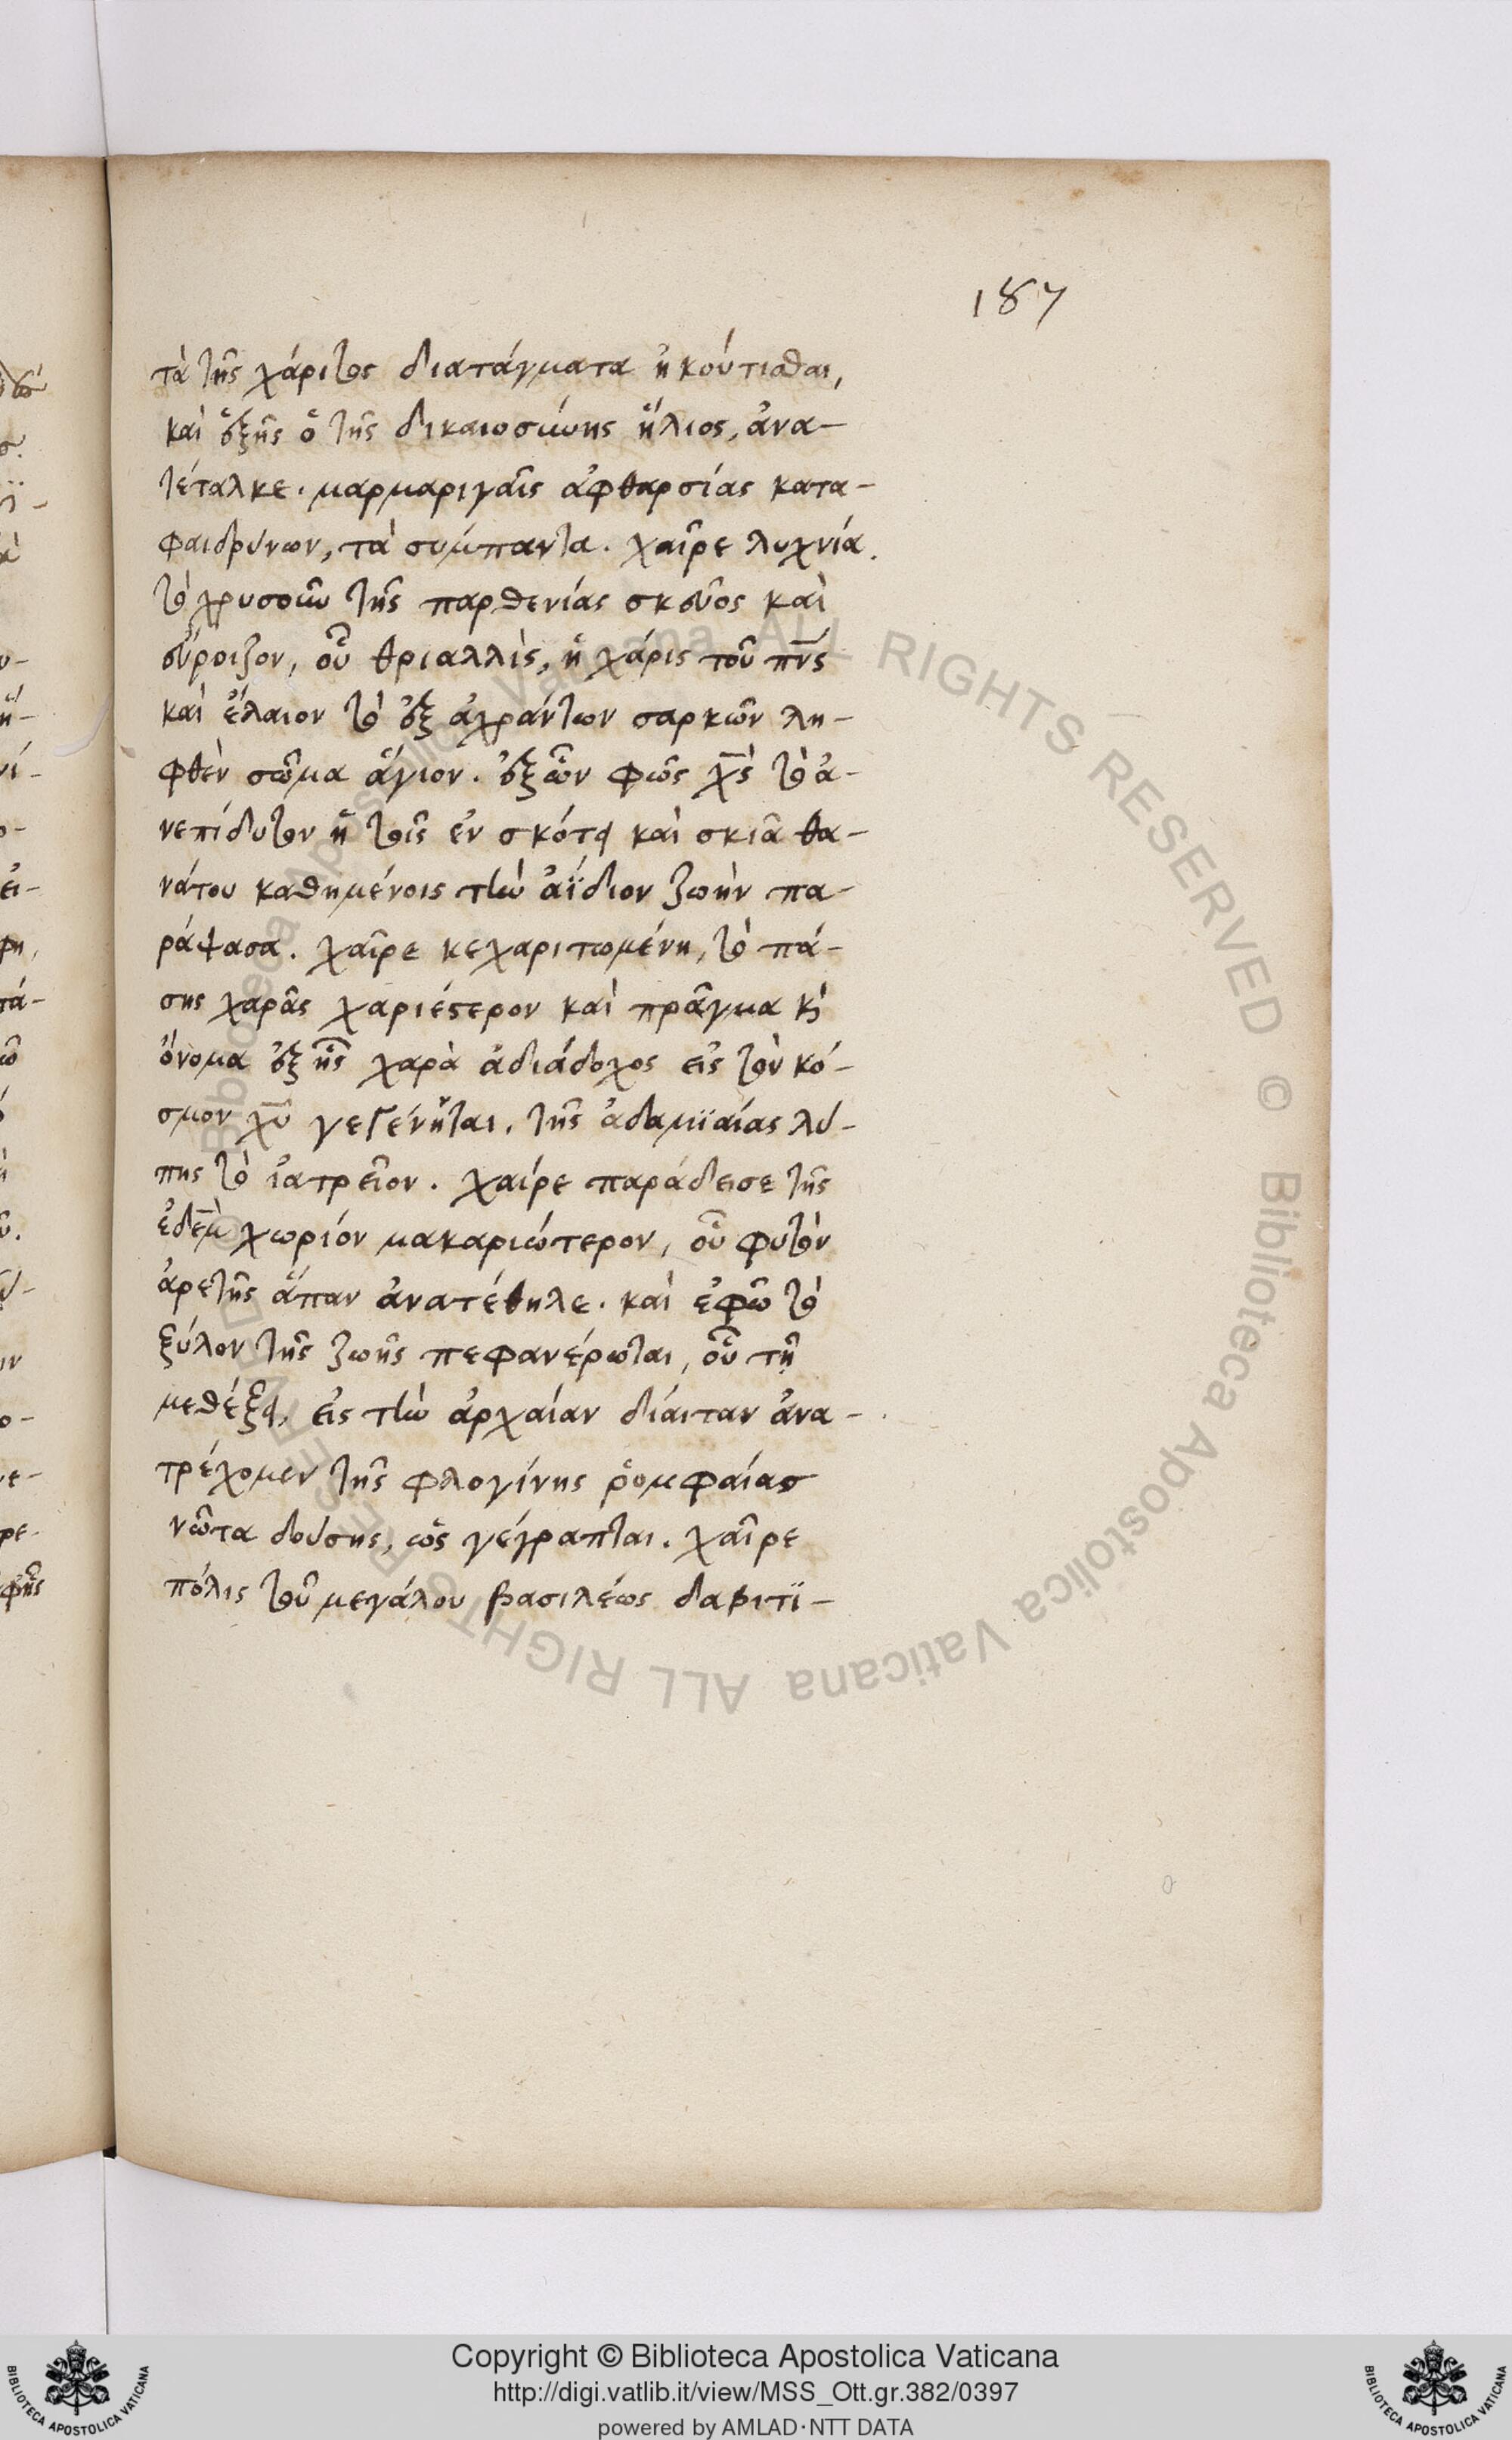 187
τὰ τῆς χάριτος διατάγματα ἠκούτισθαι,
καὶ ἐξ ἧς ὁ τῆς δικαιοσύνης ἥλιος, ἀνα-
τέταλκε. μαρμαριγαῖς ἀφθαρσίας κατα-
φαιδρύνων, τὰ σύμπαντα. χαῖρε λυχνία.
τὸ χρυσοῦν τῆς παρθενίας σκεῦος καὶ
εὔροιζον, οὗ θριαλλὶς, ἡ χάρις τοῦ πν̅ς
καὶ ἔλαιον τὸ ἐξ ἀχράντων σαρκῶν λη-
φθὲν σῶμα ἅγιον. ἐξ ὧν φῶς χ̅ς τὸ ἀ-
νεπίδυτον ἡ τοῖς ἐν σκότῳ καὶ σκιᾶ θα-
νάτου καθημένοις τὴν ἀΐδιον ζωὴν πα-
ράψασα. χαῖρε κεχαριτωμένη, τὸ πά-
σης χαρᾶς χαριέστερον καὶ πρᾶγμα κὶ
ὄνομα ἐξ ἧς χαρὰ ἀδιάδοχος εἰς τὸν κό-
σμον χ̅υ γεγένηται. τῆς ἀδαμϊαίας λύ-
πης τὸ ἰατρεῖον. χαίρε παράδεισε τῆς
ἐδε̅μ χωριόν μακαριώτερον, οὗ φυτὸν
ἀρετῆς ἅπαν ἀνατέθηλε. καὶ ἐφῶ τὸ
ξύλον τῆς ζωῆς πεφανέρωται, οὗ τῆ
μεθέξῃ, εἰς τὴν ἀρχαίαν δίαιταν ἀνα-
τρέχομεν τῆς φλογίνης ῥομφαίας
νῶτα δούσης, ὡς γέγραπται. χαῖρε
πόλις τοῦ μεγάλου βασιλέως δαβιτϊ-
© Biblioteca Apostolica Vaticana ALL RIGHTS RESERVED © Biblioteca Apostolica Vaticana ALL RIGHTS RESERVED
Copyright © Biblioteca Apostolica Vaticana
http://digi.vatlib.it/view/MSS_Ott.gr.382/0397
powered by AMLAD·NTT DATA
BIBLIOTECA APOSTOLICA VATICANA
BIBLIOTECA APOSTOLICA VATICANA